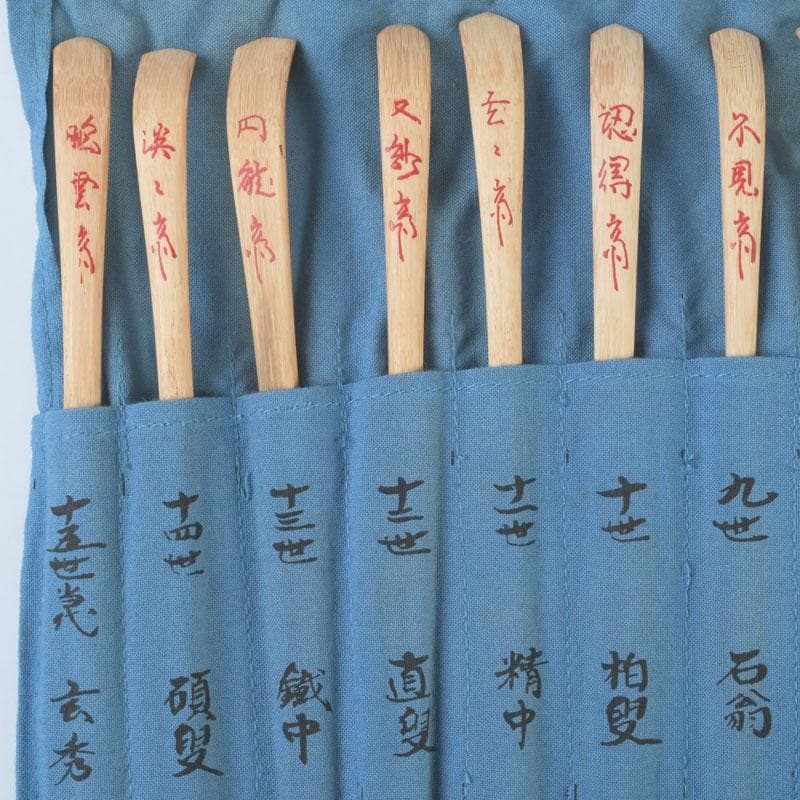 不見斎
認得斎
玄々斎
又玅斎
円能斎
淡々斎
鵬雲斎
九世
石翁
十世
柏叟
十一世
精中
十二世
直叟
十三世
鐵中
十四世
碩叟
十五世当代
玄秀